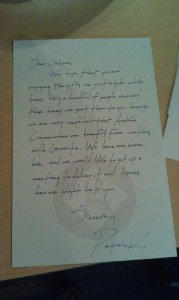 Dear Glenn,
We hope that you are
enjoying the gifts we sent in the white
boxes. Only a handful of people received
these boxes we sent them to you because
we are very confident that
Corporation can benefit from working
with We have one more
box, and we would like to set up a
meeting to deliver it and discuss
how we might help you.
Sincerely,
Patrick